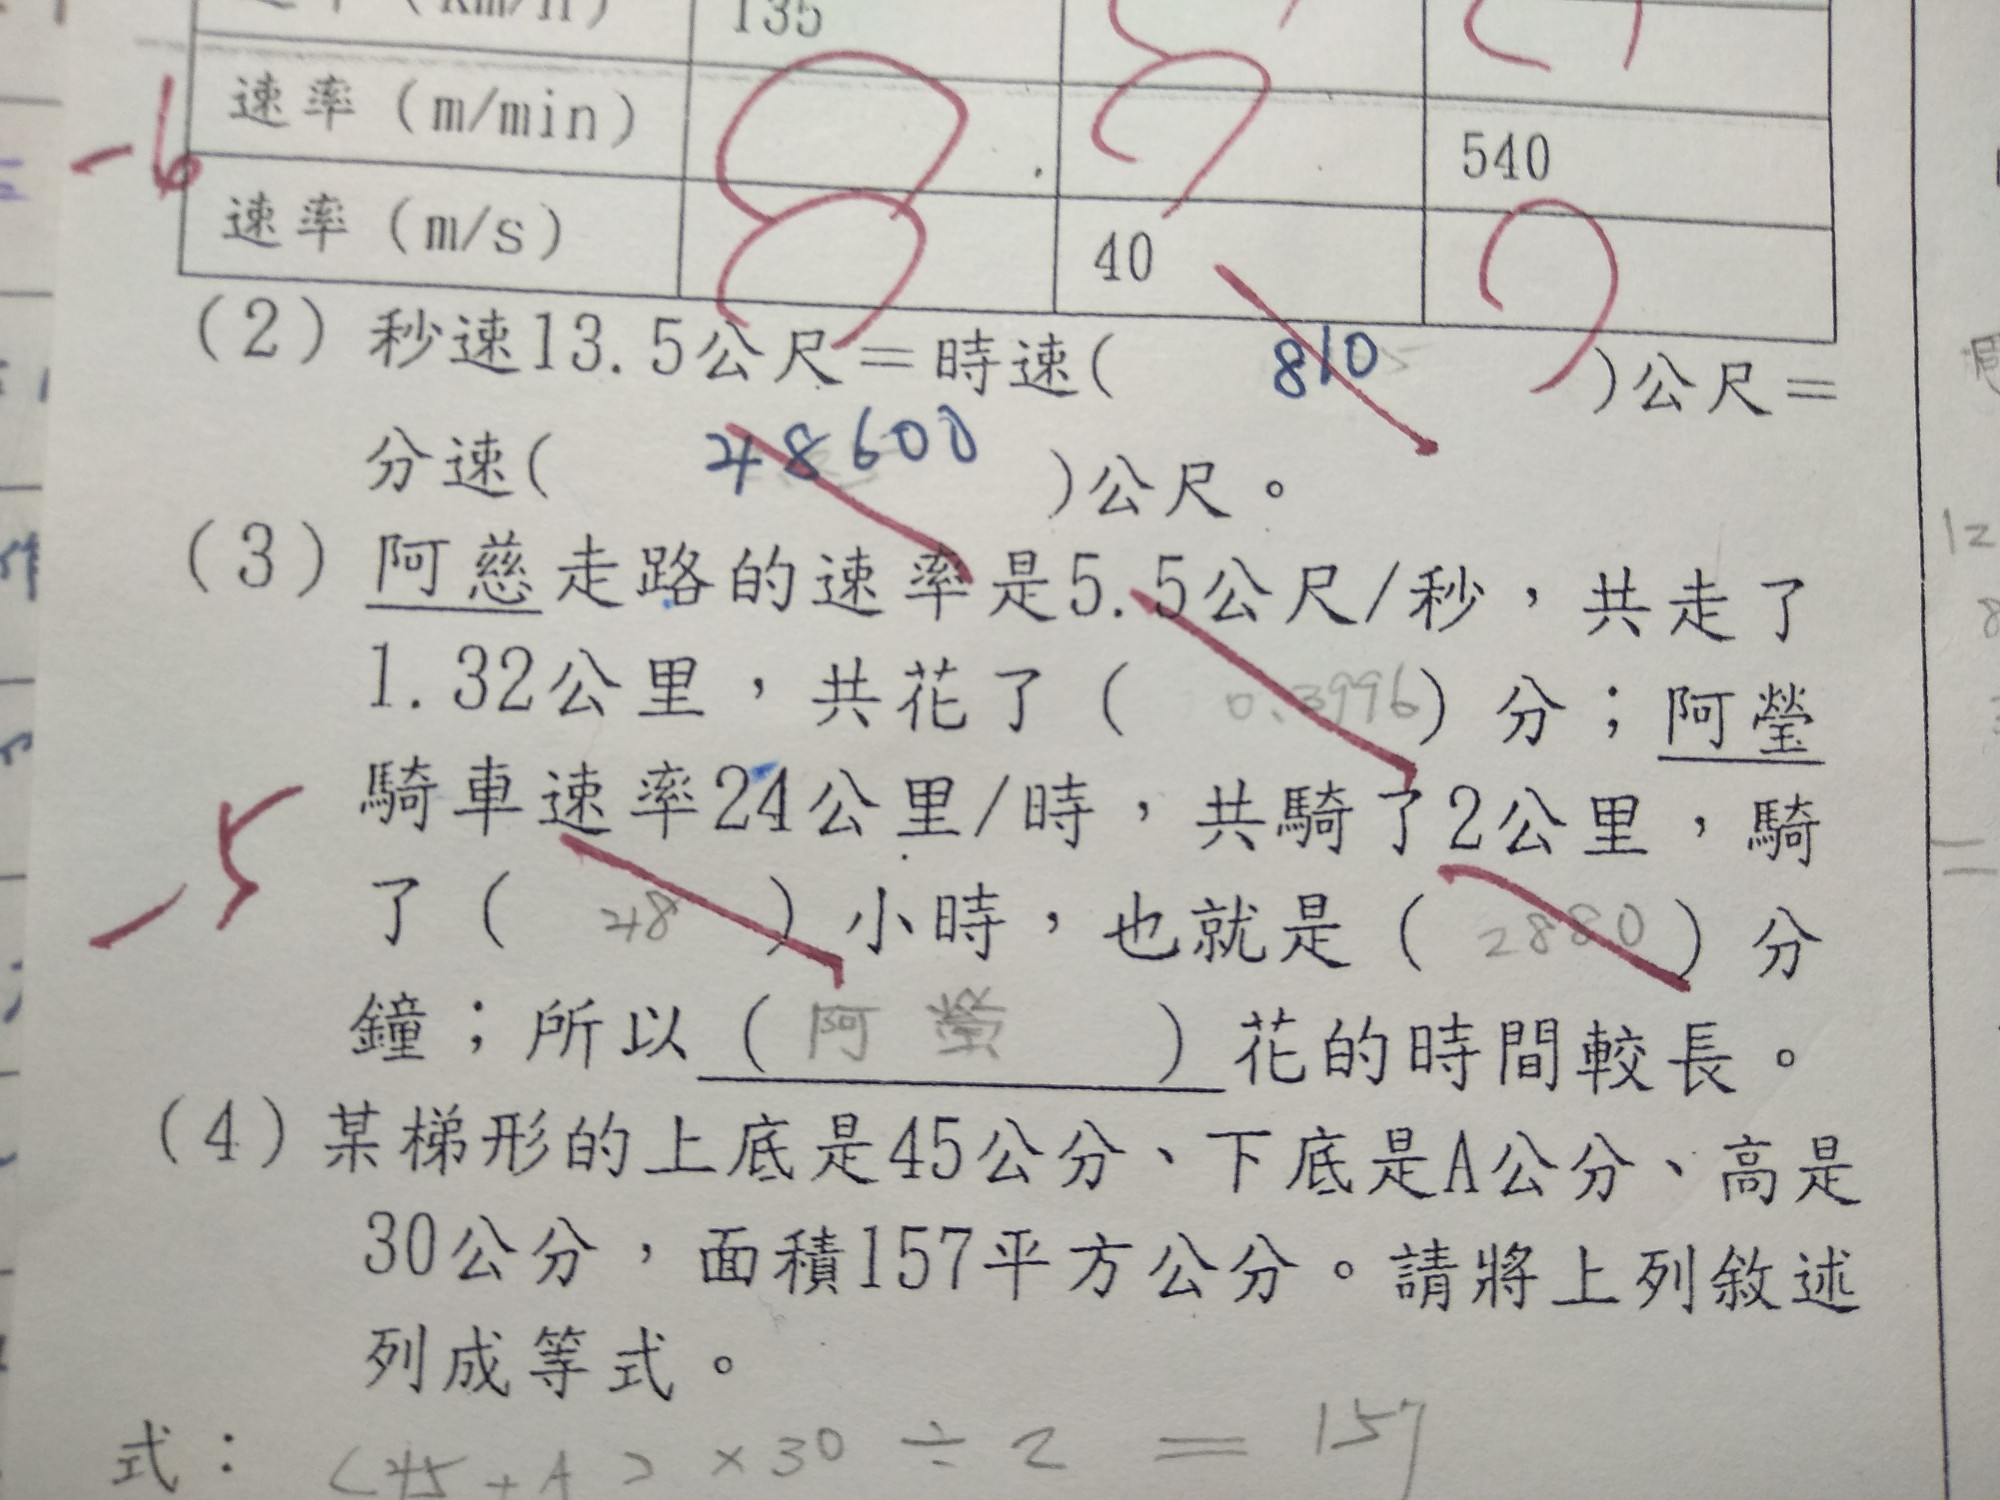 135
速率（m/min）
540
-6
速率（m/s）
40
(2) 秒速13.5公尺＝時速( 810 )公尺＝
分速( 48600 )公尺。
(3) 阿慈走路的速率是5.5公尺/秒，共走了
1.32公里，共花了（ 0.3996 ）分；阿瑩
騎車速率24公里/時，共騎了2公里，騎
-5
了（ 48 ）小時，也就是（ 2880 ）分
鐘；所以（ 阿瑩 ）花的時間較長。
(4) 某梯形的上底是45公分、下底是A公分、高是
30公分，面積157平方公分。請將上列敘述
列成等式。
式：(45+A)×30÷2＝157